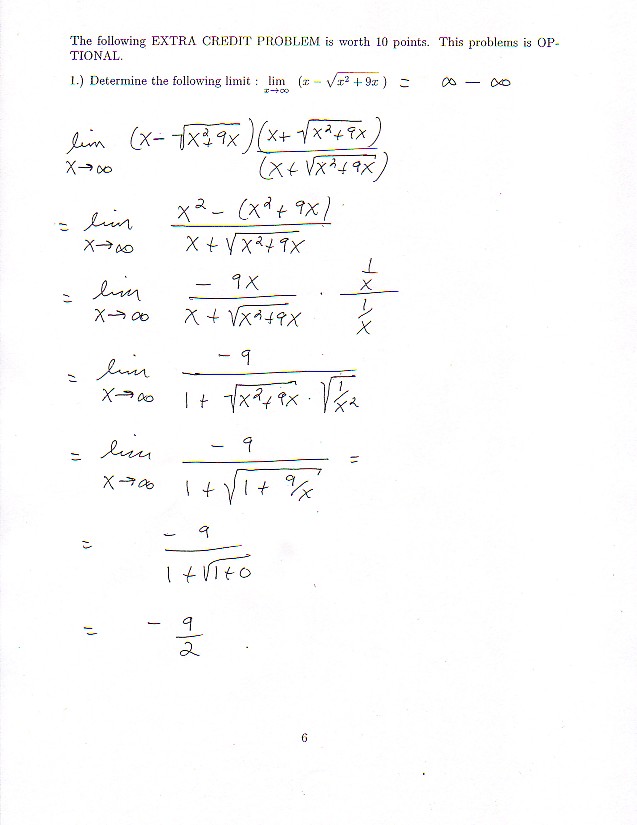 The following EXTRA CREDIT PROBLEM is worth 10 points. This problems is OP-
TIONAL.
1.) Determine the following limit : lim_{x→∞} (x − √(x² + 9x) ) = ∞ − ∞
lim_{x→∞} (x − √(x²+9x)) (x + √(x²+9x))/(x + √(x²+9x))
= lim_{x→∞} (x² − (x² + 9x))/(x + √(x²+9x))
= lim_{x→∞} (−9x)/(x + √(x²+9x)) · (1/x)/(1/x)
= lim_{x→∞} (−9)/(1 + √(x²+9x) · √(1/x²))
= lim_{x→∞} (−9)/(1 + √(1 + 9/x)) =
= (−9)/(1 + √(1+0))
= − 9/2 .
6